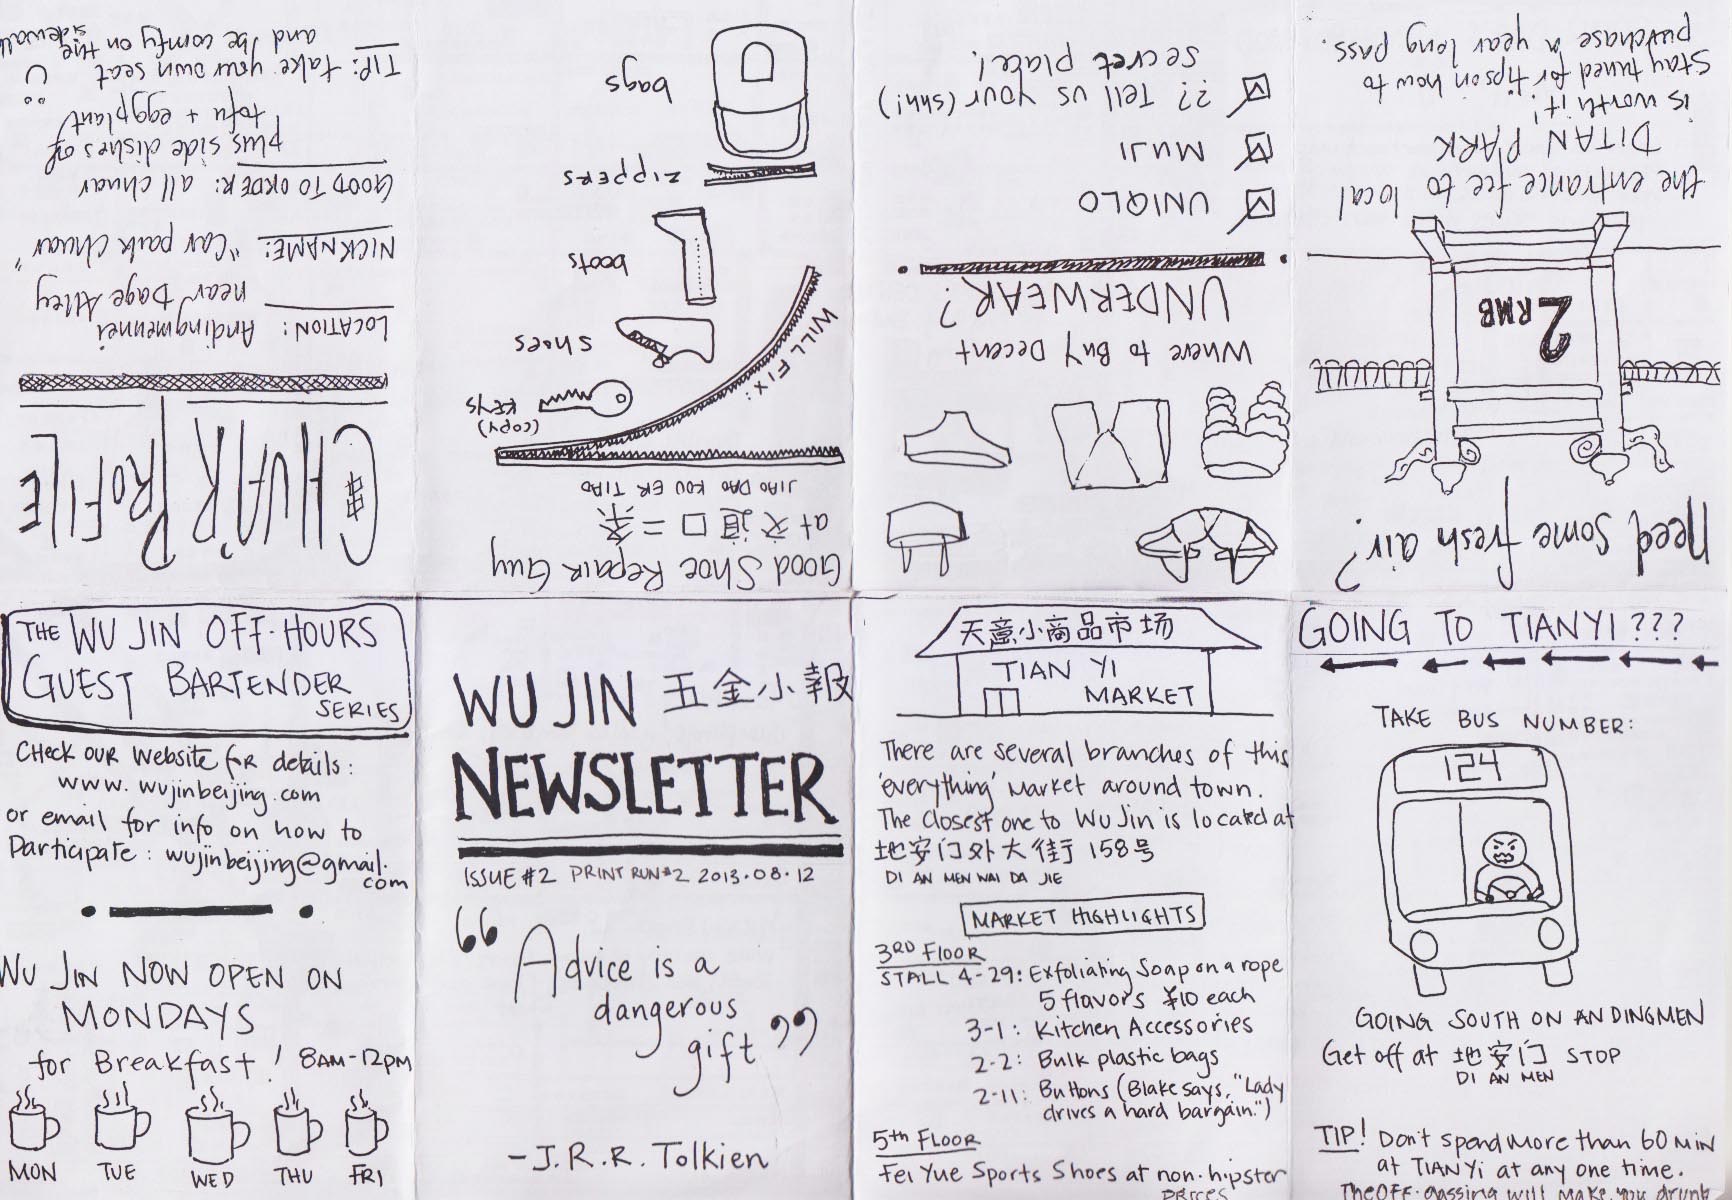 CHUAR PROFILE
LOCATION: Andingmennei
near Dage Alley
NICKNAME: "Car park Chuar"
GOOD TO ORDER: all chuar
plus side dishes of
tofu + eggplant
TIP: take your own seat
and be comfy on the
sidewalk
Good Shoe Repair Guy
at 交道口二条
JIAO DAO KOU ER TIAO
WILL FIX:
(copy)
KEYS
shoes
boots
zippers
bags
Where to Buy Decent
UNDERWEAR?
UNIQLO
MUJI
?? Tell us your (shh!)
secret place!
Need some fresh air?
2 RMB
the entrance fee to local
DITAN PARK
is worth it!
Stay tuned for tips on how to
purchase a year long pass.
THE WU JIN OFF-HOURS
GUEST BARTENDER
SERIES
Check our website for details:
www.wujinbeijing.com
or email for info on how to
Participate: wujinbeijing@gmail.
com
WU JIN NOW OPEN ON
MONDAYS
for Breakfast! 8AM-12PM
MON TUE WED THU FRI
WU JIN 五金小報
NEWSLETTER
ISSUE #2 PRINT RUN #2 2013.08.12
“Advice is a
dangerous
gift”
-J.R.R. Tolkien
天意小商品市场
TIAN YI
MARKET
There are several branches of this
'everything' market around town.
The closest one to Wu Jin is located at
地安门外大街 158号
DI AN MEN WAI DA JIE
MARKET HIGHLIGHTS
3RD FLOOR
STALL 4-29: Exfoliating Soap on a rope
5 flavors ¥10 each
3-1: Kitchen Accessories
2-2: Bulk plastic bags
2-11: Buttons (Blake says, "Lady
drives a hard bargain.")
5th FLOOR
Fei Yue Sports Shoes at non-hipster
PRICES
GOING TO TIANYI???
TAKE BUS NUMBER:
124
GOING SOUTH ON ANDINGMEN
Get off at 地安门 STOP
DI AN MEN
TIP! Don't spend more than 60 MIN
at TIANYI at any one time.
The OFF-gassing will make you drunk